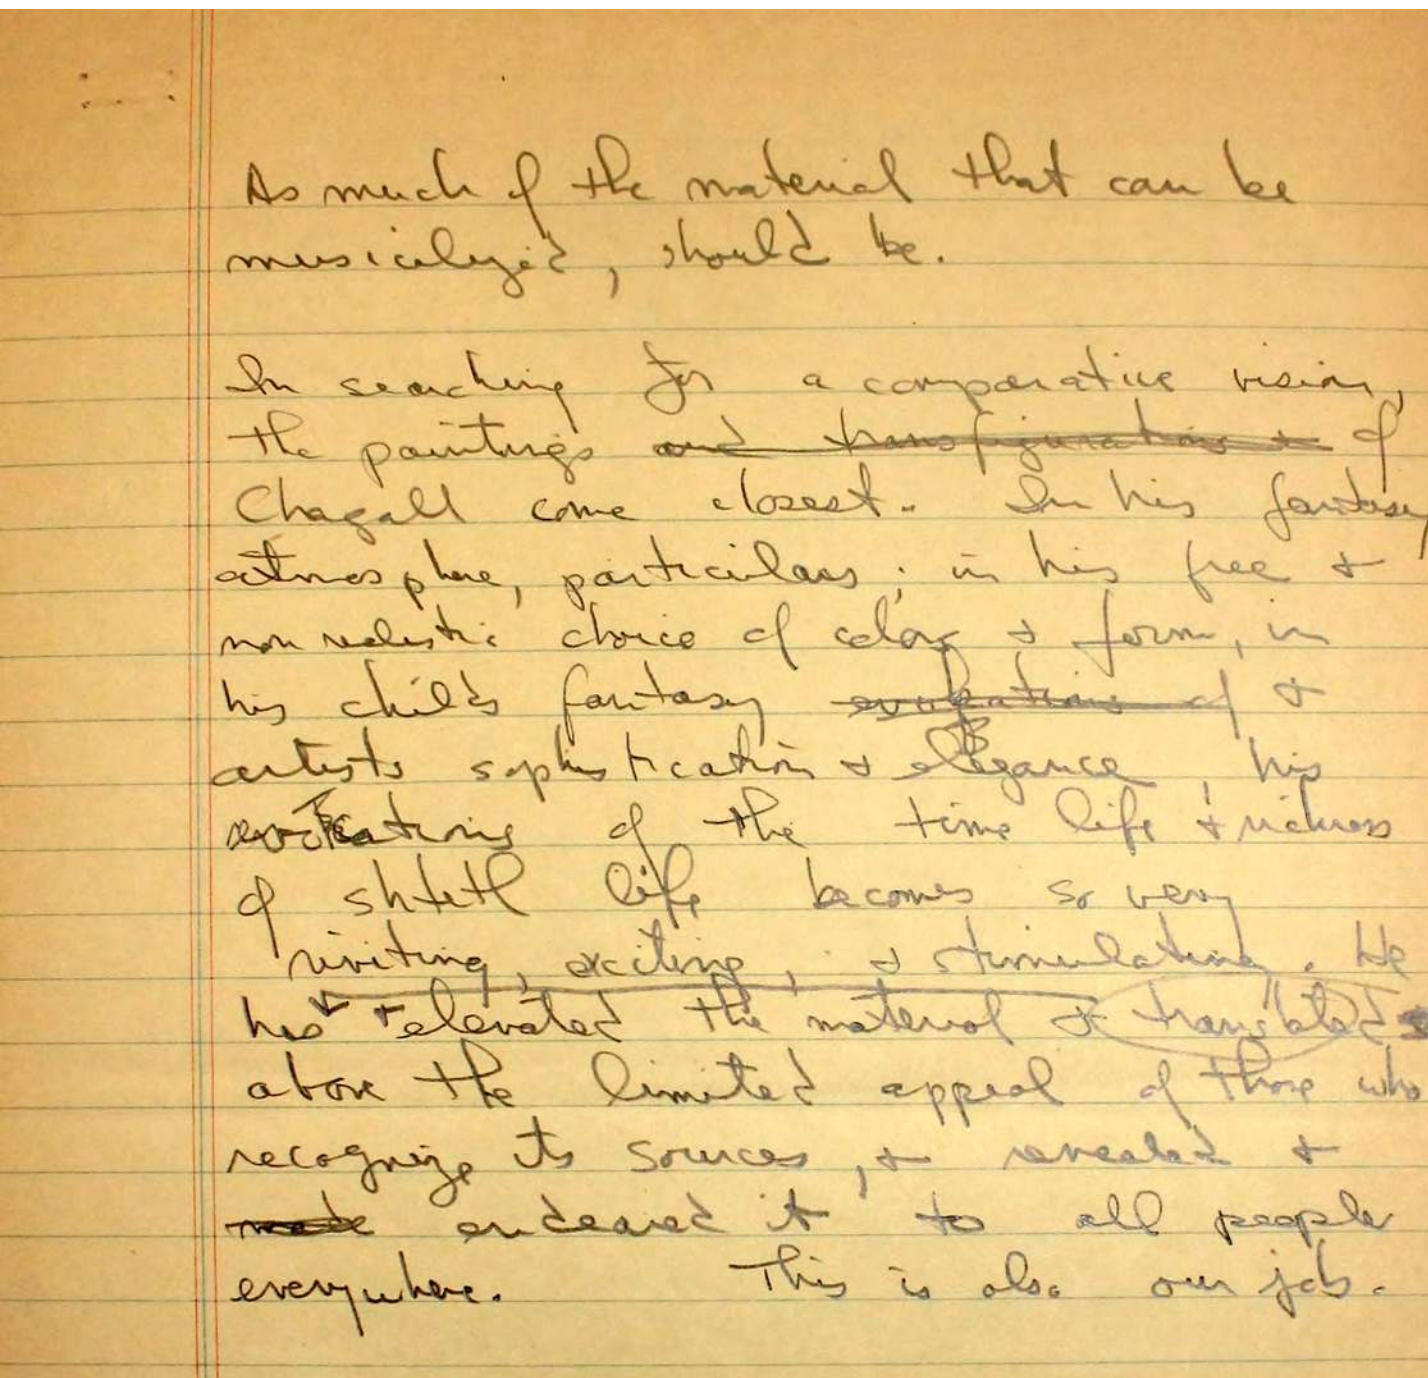 As much of the material that can be
musicalized, should be.
In searching for a comparative vision,
the paintings and transfigurations & of
Chagall come closest. In his fantasy
atmosphere, particulars; in his free &
non realistic choice of color & form, in
his child's fantasy evokations of &
artists sophistication & elegance, his
evokations of the time life & richness
of shtetl life becomes so very
inviting, exciting, & stimulating. He
has elevated the material & translated
above the limited appeal of those who
recognize its sources, & revealed &
made endeared it to all people
everywhere. This is also our job.